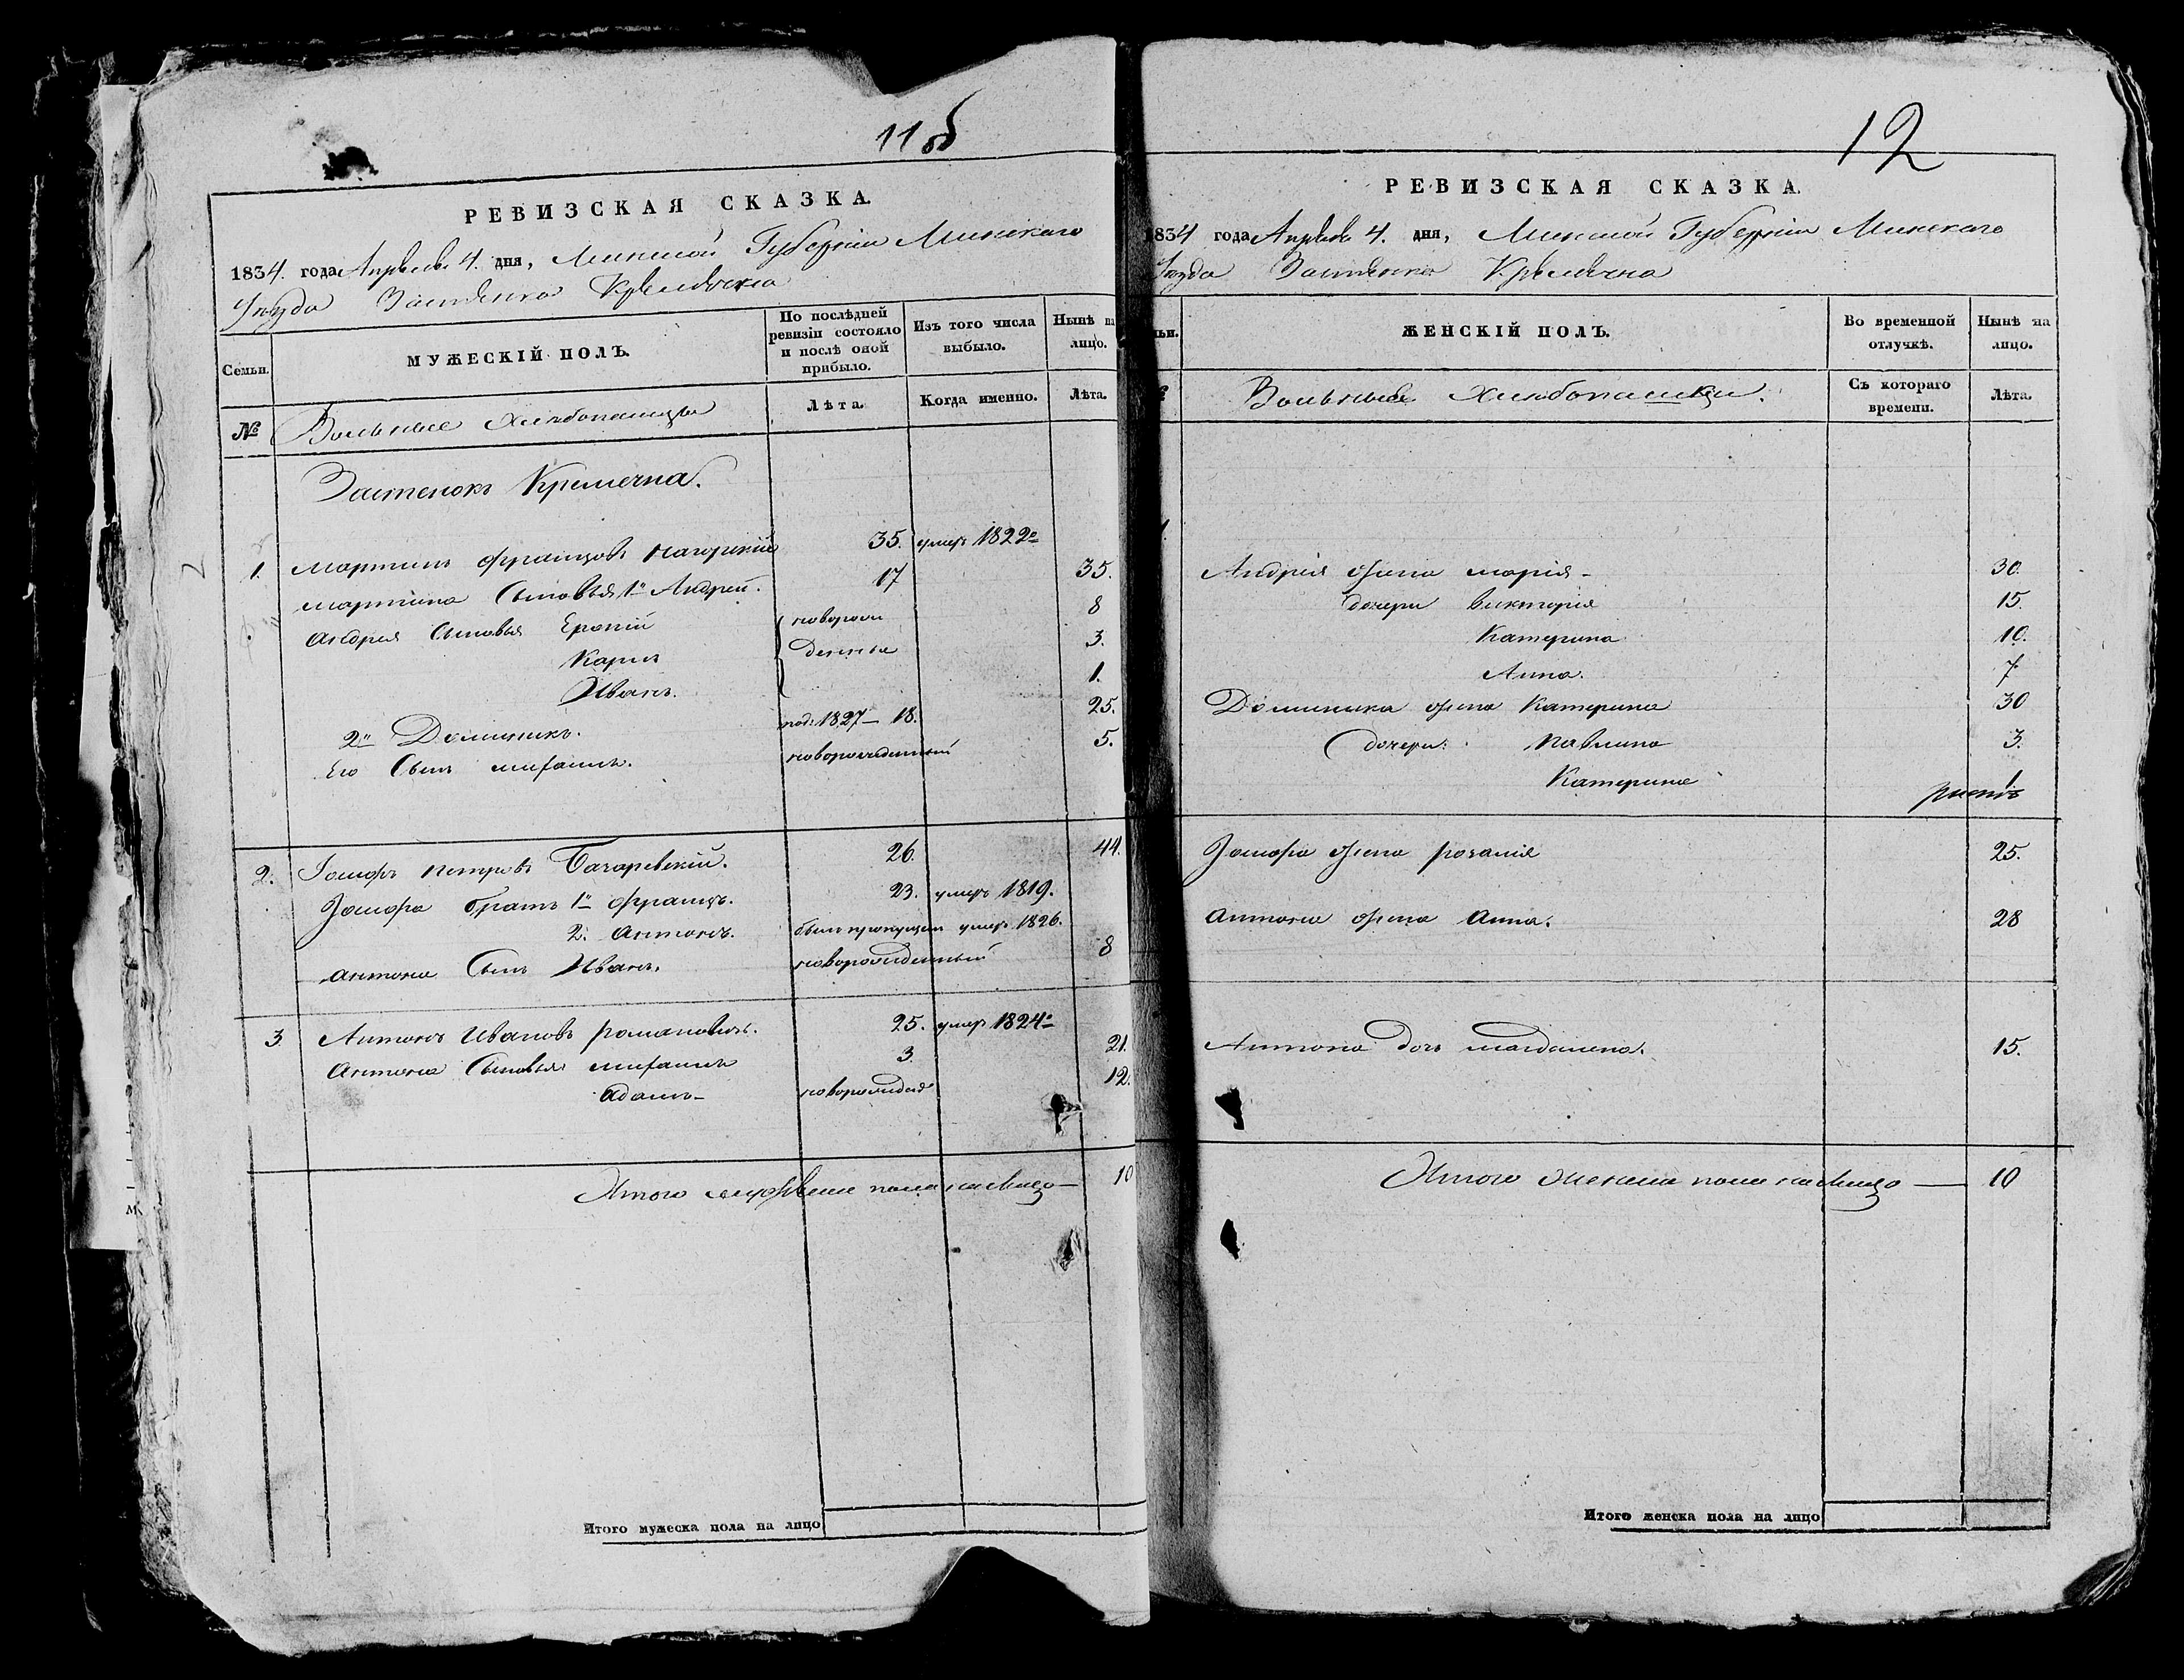 11об
РЕВИЗСКАЯ СКАЗКА.
1834. года Апреля 4. дня, Минской Губерніи Минскаго
Уезда Застенка Кремечна
Семьи.
МУЖЕСКІЙ ПОЛЪ.
По послѣдней ревизіи состояло и послѣ оной прибыло.
Изъ того числа выбыло.
Нынѣ на лицо.
№
Вольные хлебопашцы
Лѣта.
Когда именно.
Лѣта.
Застенокъ Кремечна.
1. Мартинъ Францовъ Нагорскій 35. умеръ 1822го
Мартина Сыновья 1й Андрей. 17 35.
Андрея Сыновья новорож 8
Карлъ денные 3.
Иванъ. 1.
2й Доминикъ. 1827 18. 25.
Его Сынъ михаилъ. новорожденный 5.
2. Іосифъ Петровъ 26. 44.
Іосифа братъ 1й францъ. 23. умеръ 1819.
2. Антонъ. былъ пропущен умеръ 1826.
Антона Сынъ Иванъ. новорожденный 8
3. Антонъ Ивановъ романовичъ. 25. умеръ 1824го
Антона Сыновья михаилъ 3 21.
Адамъ новорожден 12.
Итого мужеска пола на лицо 10
Итого мужеска пола на лицо
12
РЕВИЗСКАЯ СКАЗКА.
1834 года Апреля 4. дня, Минской Губерніи Минскаго
Уезда Застенка Кремечна
ьи.
ЖЕНСКІЙ ПОЛЪ.
Во временной отлучкѣ.
Нынѣ на лицо.
Вольные хлебопашцы.
Съ котораго времени.
Лѣта.
Андрея жена марія 30.
дочери викторія 15.
Катерина 10.
Анна. 7
Доминика жена Катерина 30
дочери: павлина 3.
Катерина 1
Іосифа жена розалія 25.
Антона жена Анна. 28
Антона дочь магдалена. 15.
Итого женска пола на лицо 10
Итого женска пола на лицо